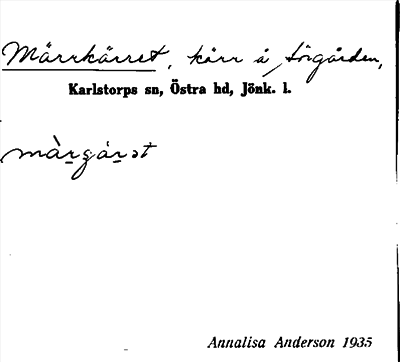 Märrkärret, kärr å Sörgården,
Karlstorps sn, Östra hd, Jönk. l.
Annalisa Anderson 1935